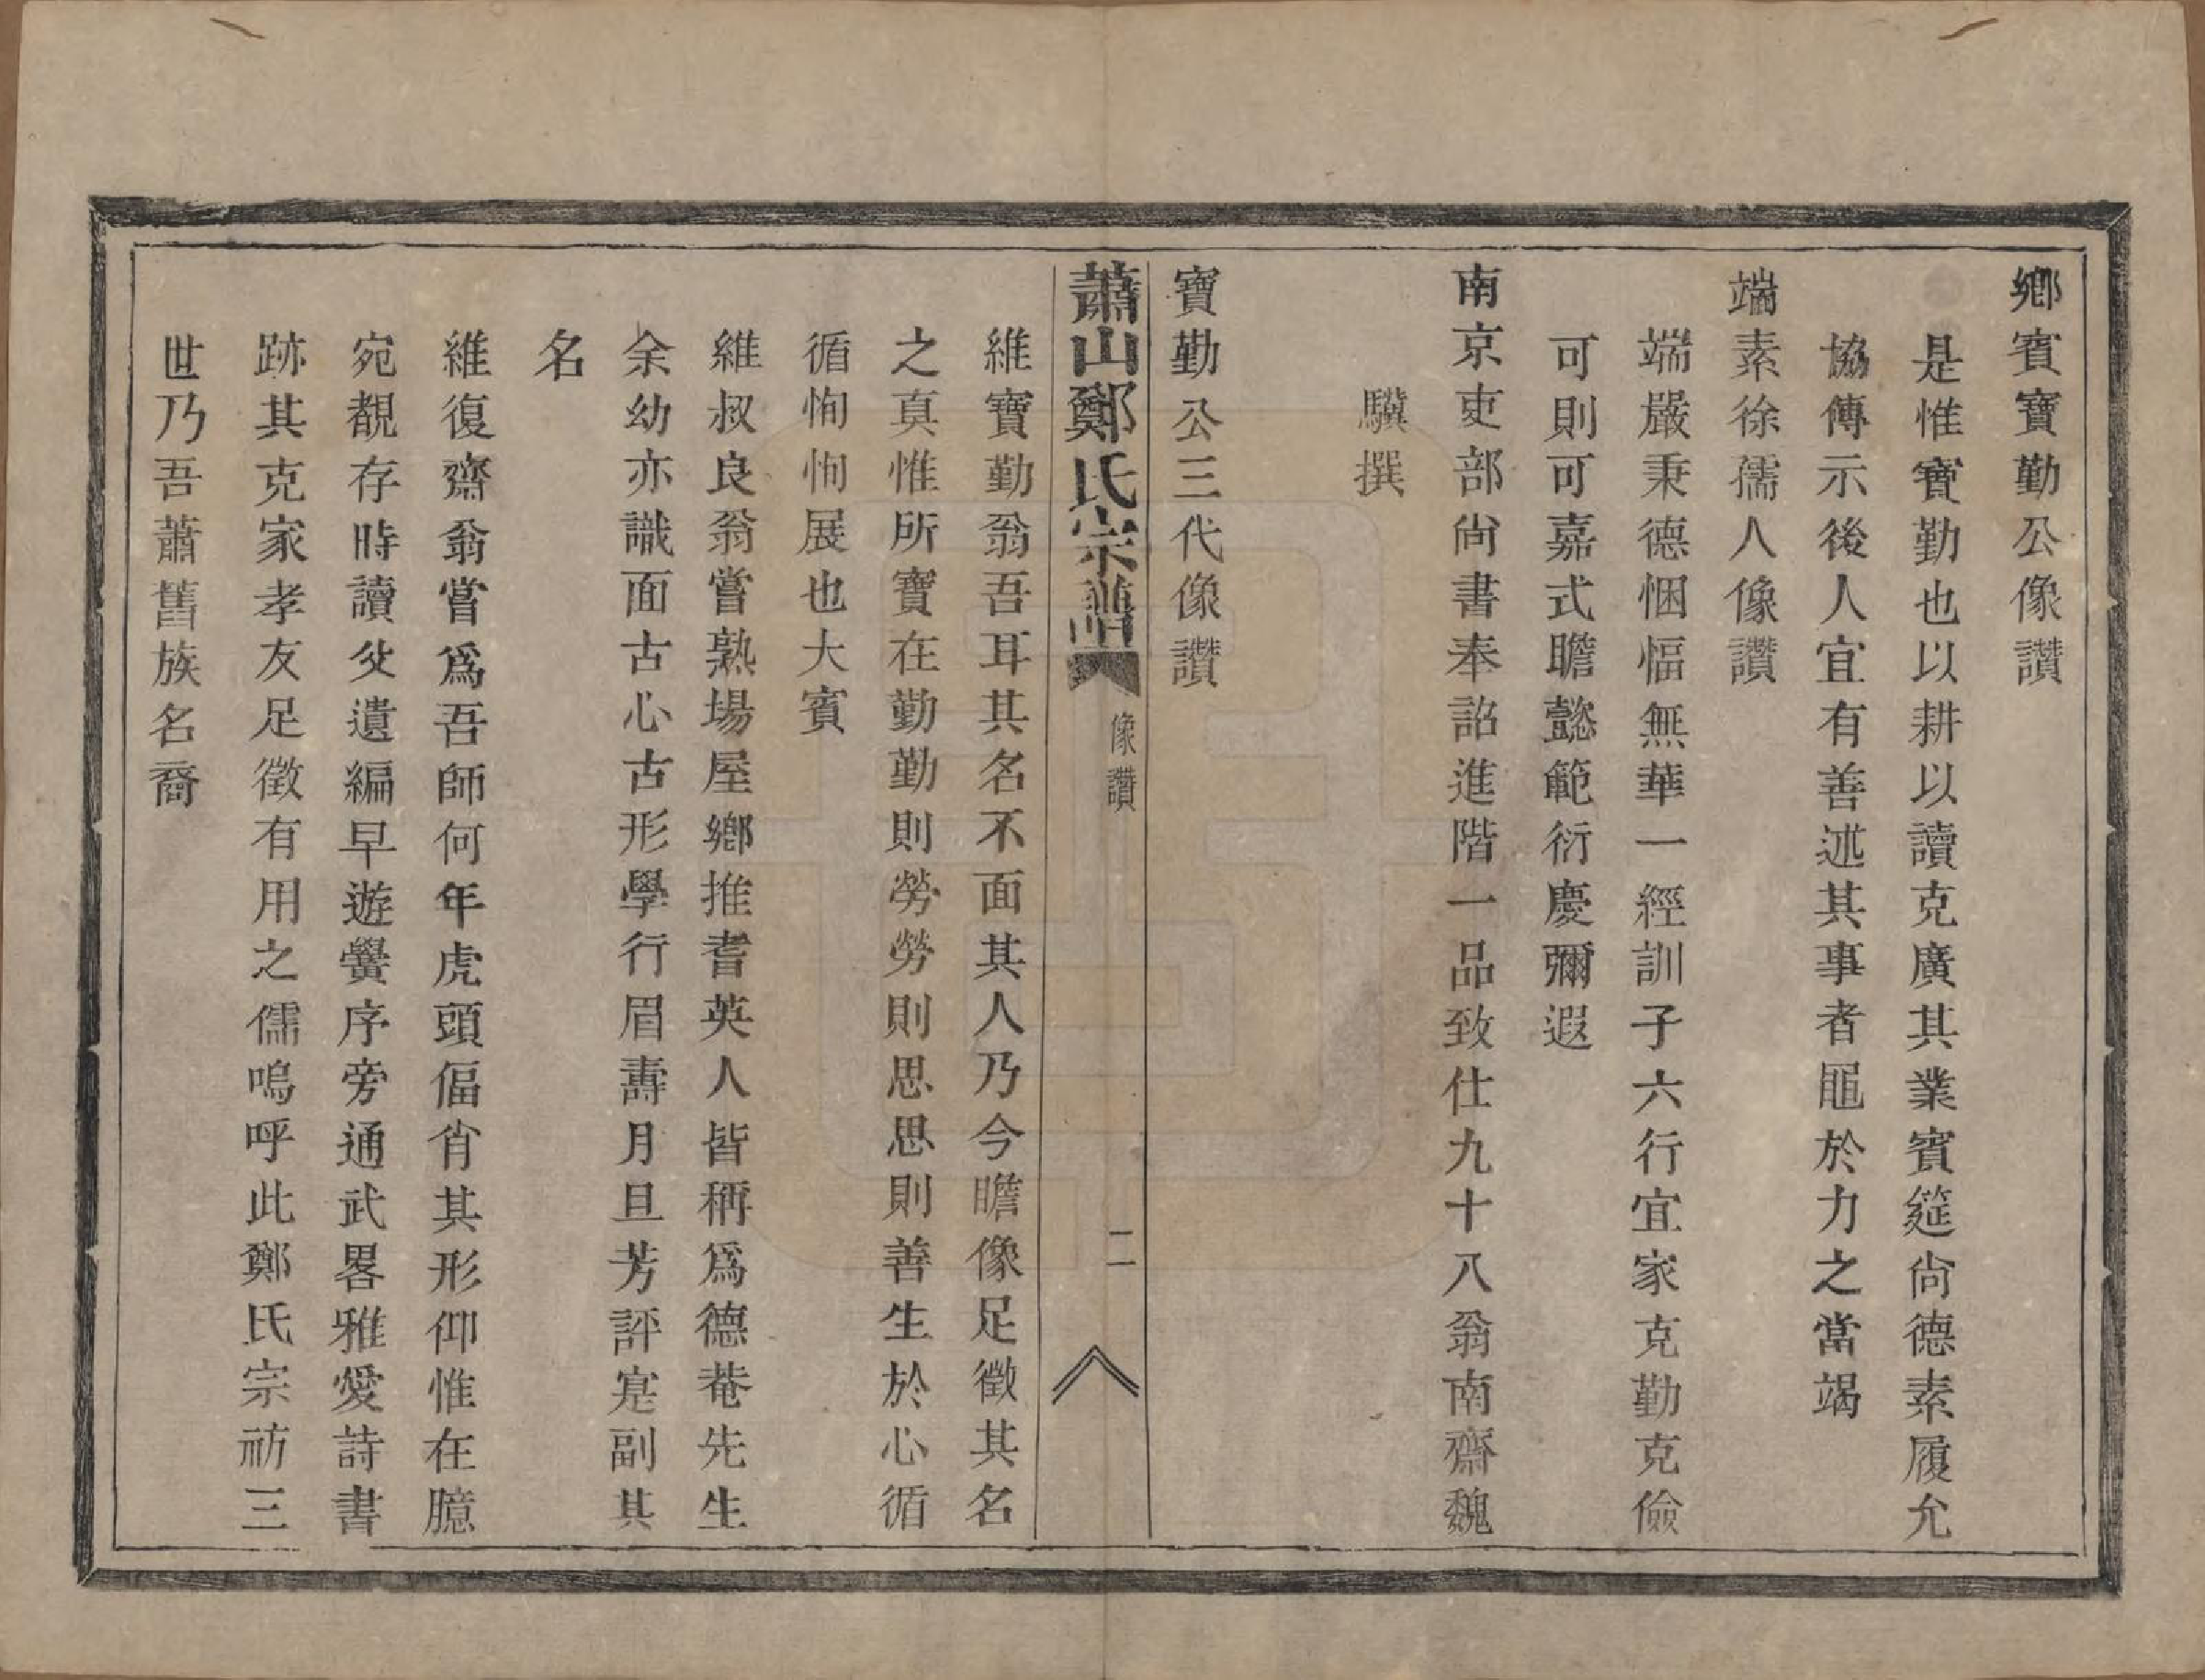 鄉賓寶勤公像讚
是惟寶勤也以耕以讀克廣其業賓筵尙德素履允
協傳示後人宜有善述其事者黽於力之當竭
端素徐孺人像讚
端嚴秉德悃愊無華一經訓子六行宜家克勤克儉
可則可嘉式瞻懿範衍慶彌遐
南京吏部尙書奉詔進階一品致仕九十八翁南齋魏
驥撰
寶勤公三代像讚
蕭山鄭氏宗譜
像讚
二
維寶勤翁吾耳其名不面其人乃今瞻像足徵其名
之真惟所寶在勤勤則勞勞則思思則善生於心循
循恂恂展也大賓
維叔良翁嘗熟場屋鄉推耆英人皆稱爲德菴先生
余幼亦識面古心古形學行眉壽月旦芳評寔副其
名
維復齋翁嘗爲吾師何年虎頭偪肖其形仰惟在臆
宛覩存時讀父遺編早遊黌序旁通武畧雅愛詩書
跡其克家孝友足徵有用之儒嗚呼此鄭氏宗祊三
世乃吾蕭舊族名裔